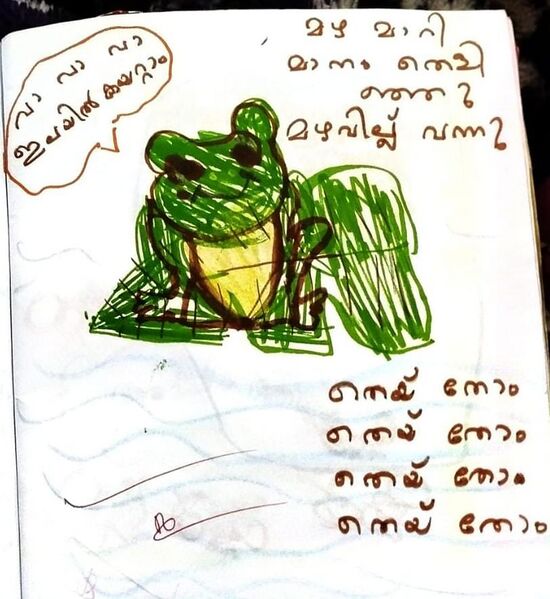 വാ വാ വാ
ഇലയിൽ കയറ്റാം
മഴ മാറി
മാനം തെളി
ഞ്ഞു
മഴവില്ല് വന്നു
തെയ് തോം
തെയ് തോം
തെയ് തോം
തെയ് തോം